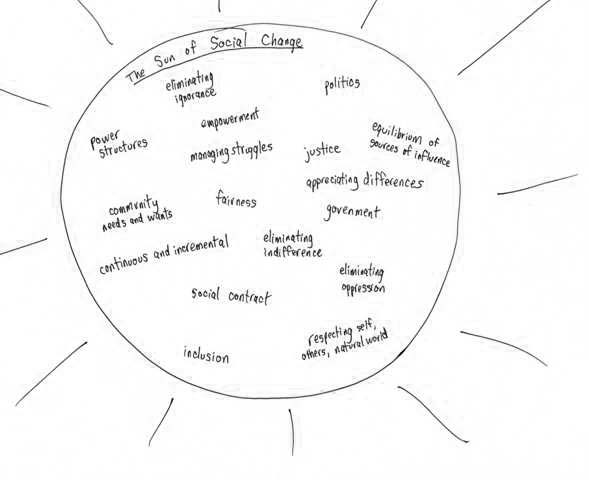 The Sun of Social Change
eliminating
ignorance
politics
empowerment
power
structures
equilibrium of
sources of influence
managing struggles
justice
appreciating differences
fairness
community
needs and wants
govenment
continuous and incremental
eliminating
indifference
eliminating
oppression
social contract
respecting self,
others, natural world
inclusion